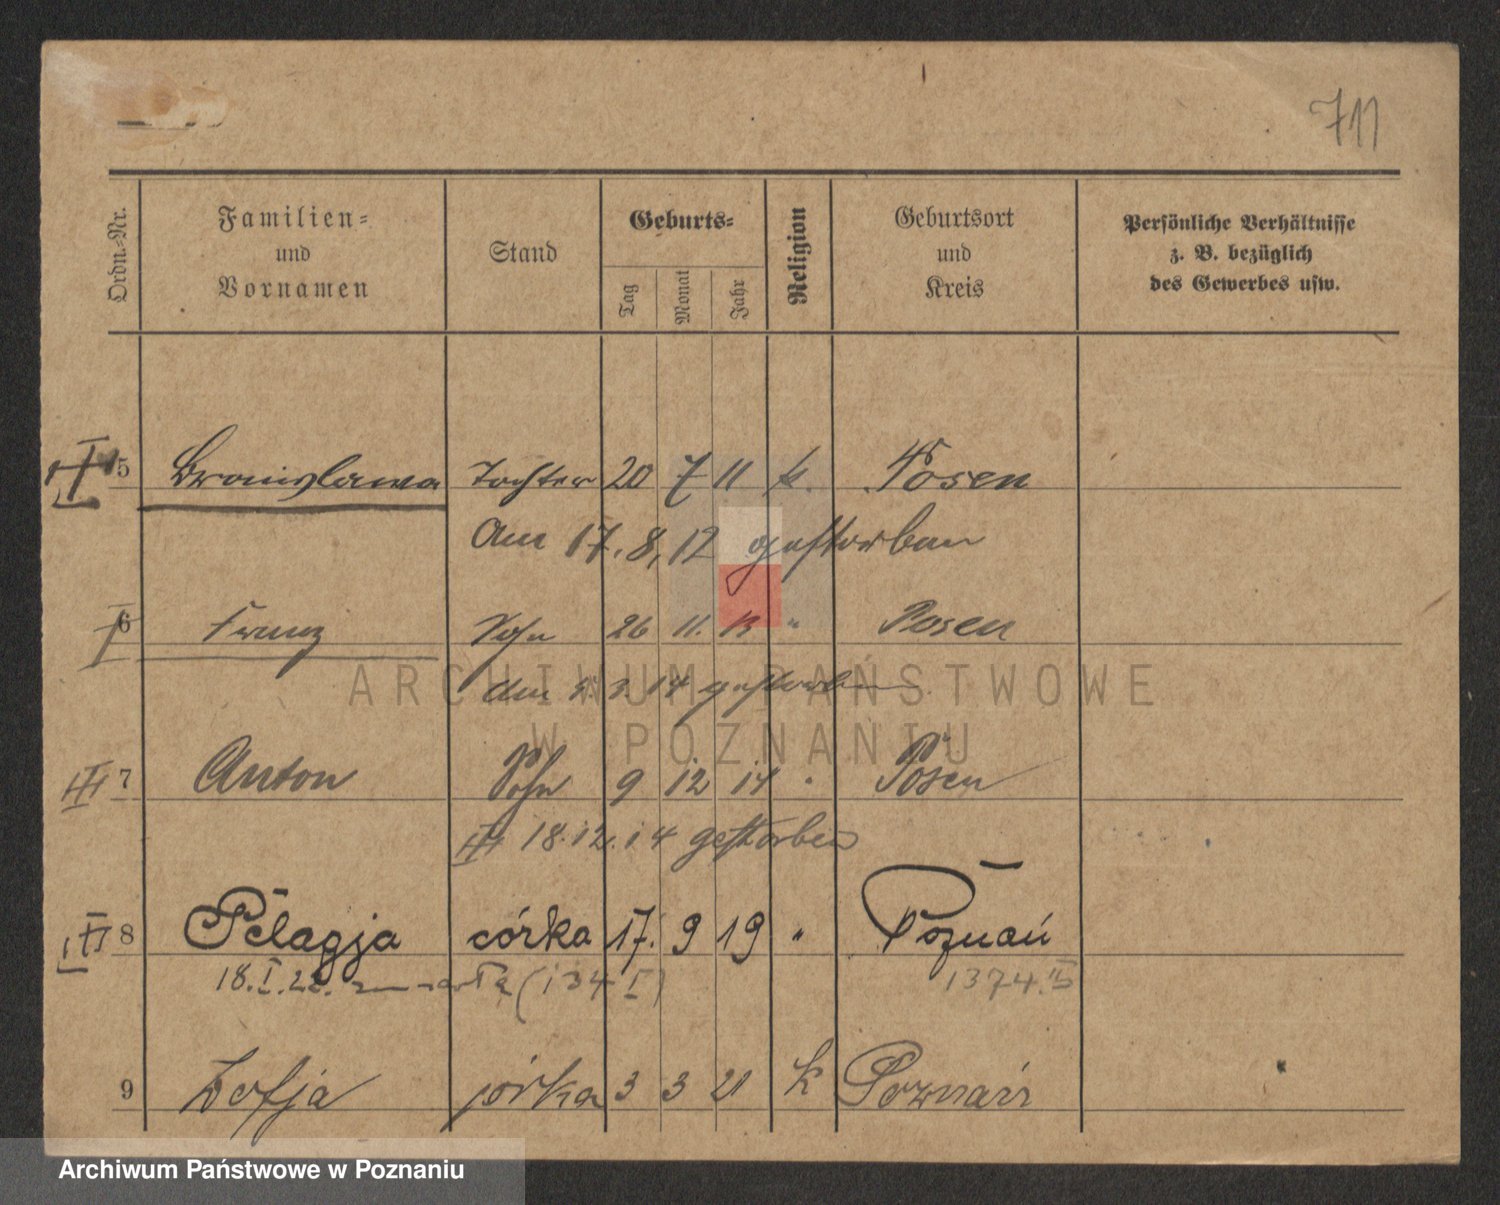 711
Ordn.-Nr.
Familien-
und
Vornamen
Stand
Geburts-
Tag
Monat
Jahr
Religion
Geburtsort
und
Kreis
Persönliche Verhältnisse
z. B. bezüglich
des Gewerbes usw.
5 Bronislawa Tochter 20 7 11 k. Posen
Am 17.8.12 gestorben
6 Franz Sohn 26 11. 13 " Posen
den 14 gestorben
ARCHIWUM PAŃSTWOWE
W POZNANIU
III 7 Anton Sohn 9 12 14 " Posen
18.12.14 gestorben
8 Pelagja córka 17. 9 19 " Poznań
18.I.22. zmarła (134 I)
1374.
9 Zofja córka 3 3 21 k Poznań
Archiwum Państwowe w Poznaniu